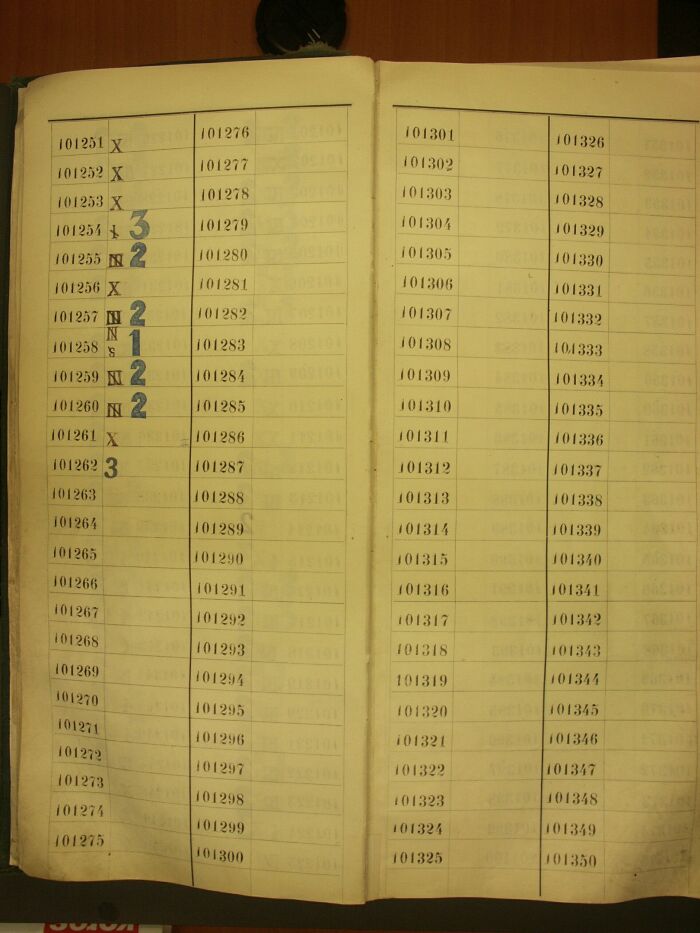 101251 X
101252 X
101253 X
101254 1 3
101255 N 2
101256 X
101257 N 2
101258 N 8 1
101259 N 2
101260 N 2
101261 X
101262 3
101263
101264
101265
101266
101267
101268
101269
101270
101271
101272
101273
101274
101275
101276
101277
101278
101279
101280
101281
101282
101283
101284
101285
101286
101287
101288
101289
101290
101291
101292
101293
101294
101295
101296
101297
101298
101299
101300
101301
101302
101303
101304
101305
101306
101307
101308
101309
101310
101311
101312
101313
101314
101315
101316
101317
101318
101319
101320
101321
101322
101323
101324
101325
101326
101327
101328
101329
101330
101331
101332
101333
101334
101335
101336
101337
101338
101339
101340
101341
101342
101343
101344
101345
101346
101347
101348
101349
101350